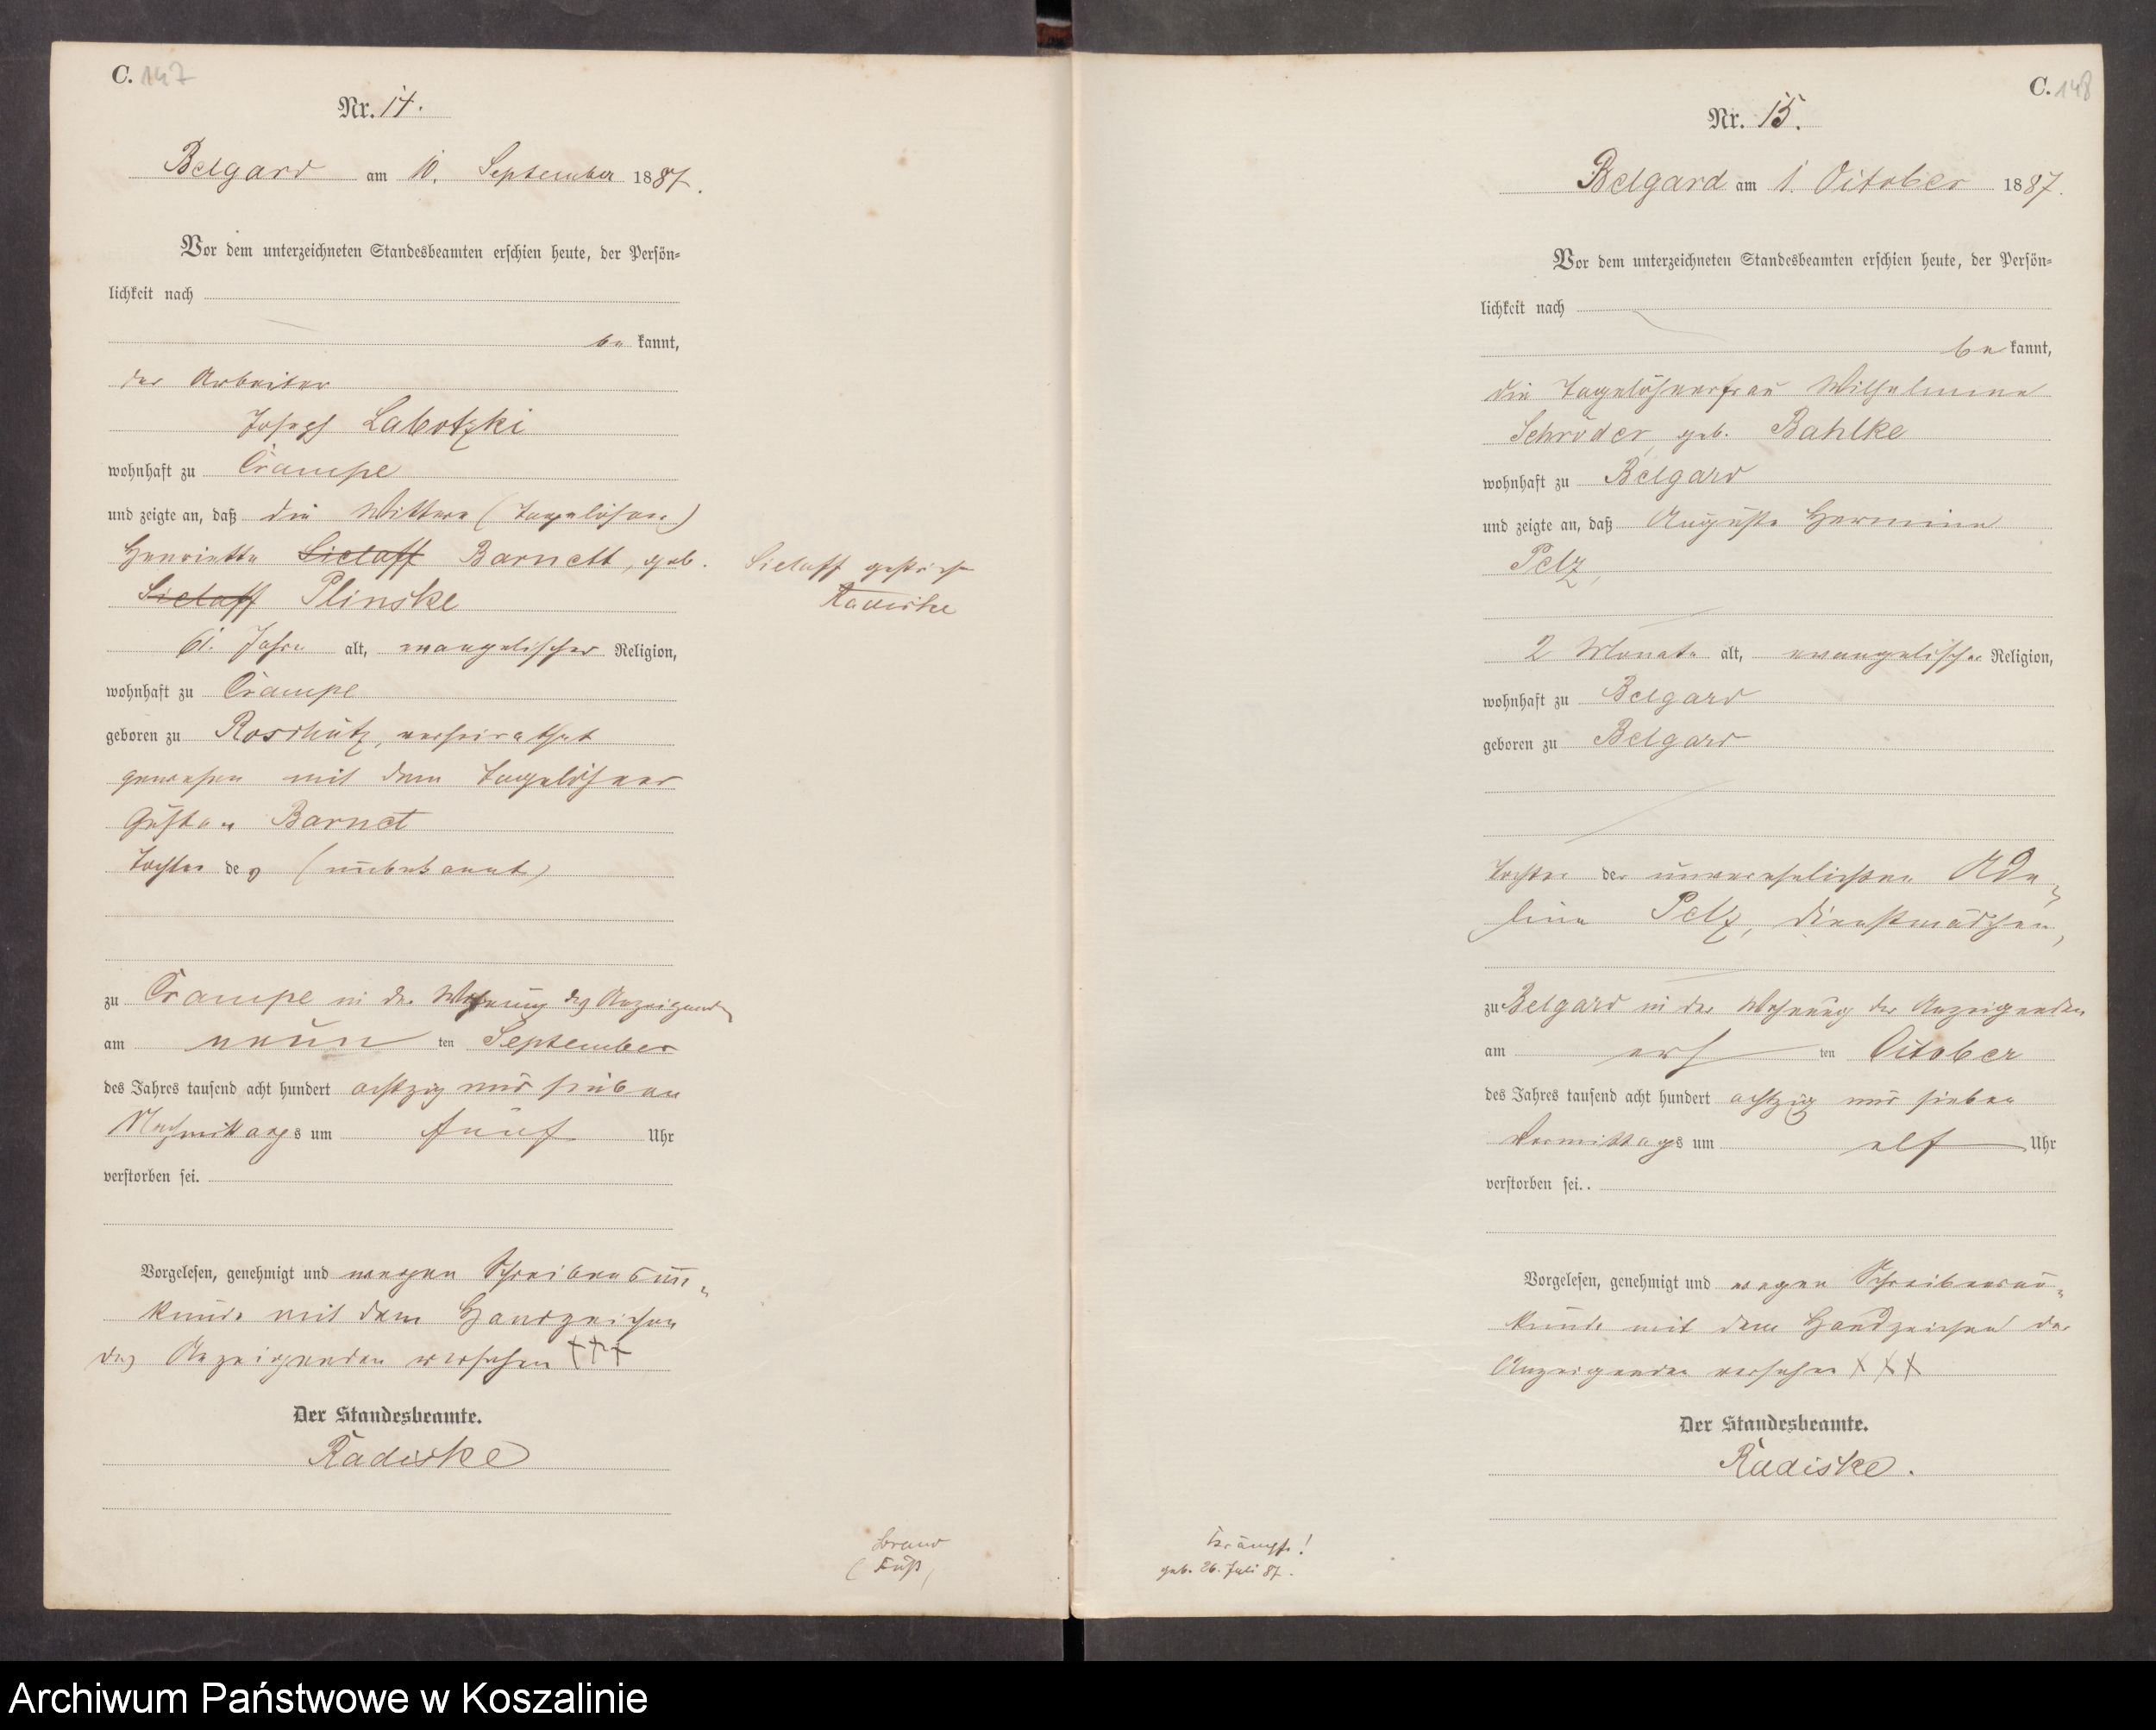 C. 147
Nr. 14.
Belgard am 10. September 1887.
Vor dem unterzeichneten Standesbeamten erschien heute, der Persön-
lichkeit nach
be kannt,
der Arbeiter
Joseph Labotzki
wohnhaft zu Crampe
und zeigte an, daß die Wittwe (Tagelöhner)
Henriette Sielaff Barnett, geb.
Sielaff Plinske
61. Jahre alt, evangelischer Religion,
wohnhaft zu Crampe
geboren zu Roschütz, verheirathet
gewesen mit dem Tagelöhner
Gustav Barnet
Tochter des (unbekannt)
zu Crampe in der Wohnung des Anzeigenden
am neun ten September
des Jahres tausend acht hundert achtzig und sieben
Nachmittags um fünf Uhr
verstorben sei.
Vorgelesen, genehmigt und wegen Schreibensun-
kunde mit dem Handzeichen
des Anzeigenden versehen +++
Der Standesbeamte.
Radiske
Sielaff
Radiske
Brand
(Fuß)
C. 148
Nr. 15.
Belgard am 1. October 1887.
Vor dem unterzeichneten Standesbeamten erschien heute, der Persön-
lichkeit nach
be kannt,
die Tagelöhnerfrau Wilhelmine
Schröder, geb. Bahlke
wohnhaft zu Belgard
und zeigte an, daß Auguste Hermine
Pelz,
2 Monate alt, evangelischer Religion,
wohnhaft zu Belgard
geboren zu Belgard
Tochter der unverehelichten Ade-
line Pelz, Dienstmädchen,
zu Belgard in der Wohnung der Anzeigenden
am ers ten October
des Jahres tausend acht hundert achtzig und sieben
Vormittags um elf Uhr
verstorben sei..
Vorgelesen, genehmigt und wegen Schreibensun-
kunde mit dem Handzeichen der
Anzeigenden versehen +++
Der Standesbeamte.
Radiske.
Krämpfe!
geb. 26. Juli 87.
Archiwum Państwowe w Koszalinie